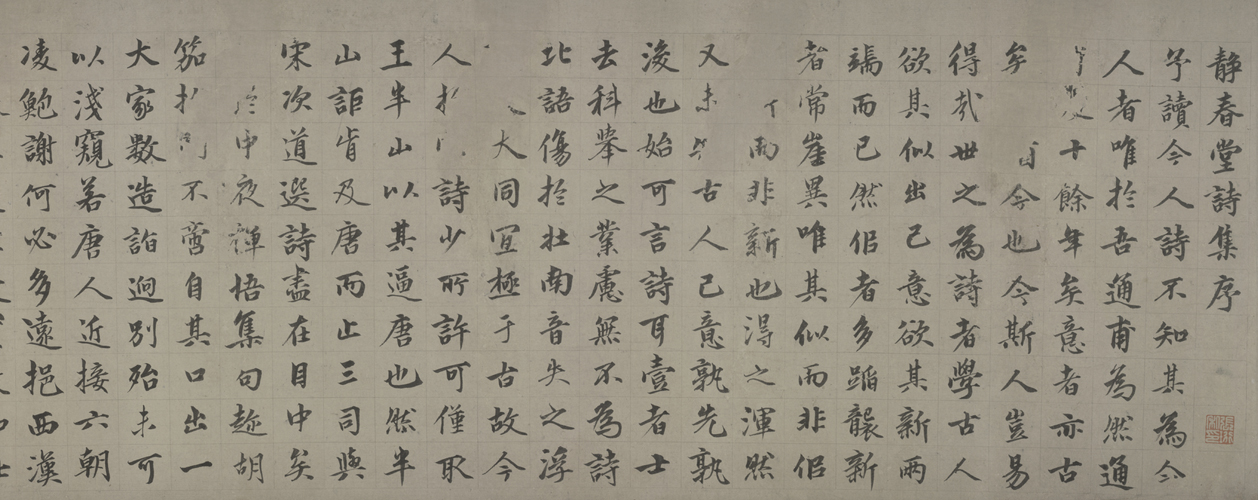 静春堂詩集序
予讀今人詩不知其為今
人者唯於吾通甫為然通
十餘年矣意者亦古
矣 今也今斯人豈易
得哉世之為詩者學古人
欲其似出己意欲其新兩
端而已然似者多蹈襲新
者常崖異唯其似而非似
而非新也得之渾然
又未 古人己意孰先孰
後也始可言詩耳壹者士
去科舉之業慮無不為詩
北語傷於壯南音失之浮
大同宜極于古故今
人 詩少所許可僅取
王半山以其逼唐也然半
山詎肯及唐而止三司與
宋次道選詩盡在目中矣
中夜禪悟集句趂胡
笳 不啻自其口出一
大家數造詣迥別殆未可
以淺窺若唐人近接六朝
凌鮑謝何必多遠挹西漢